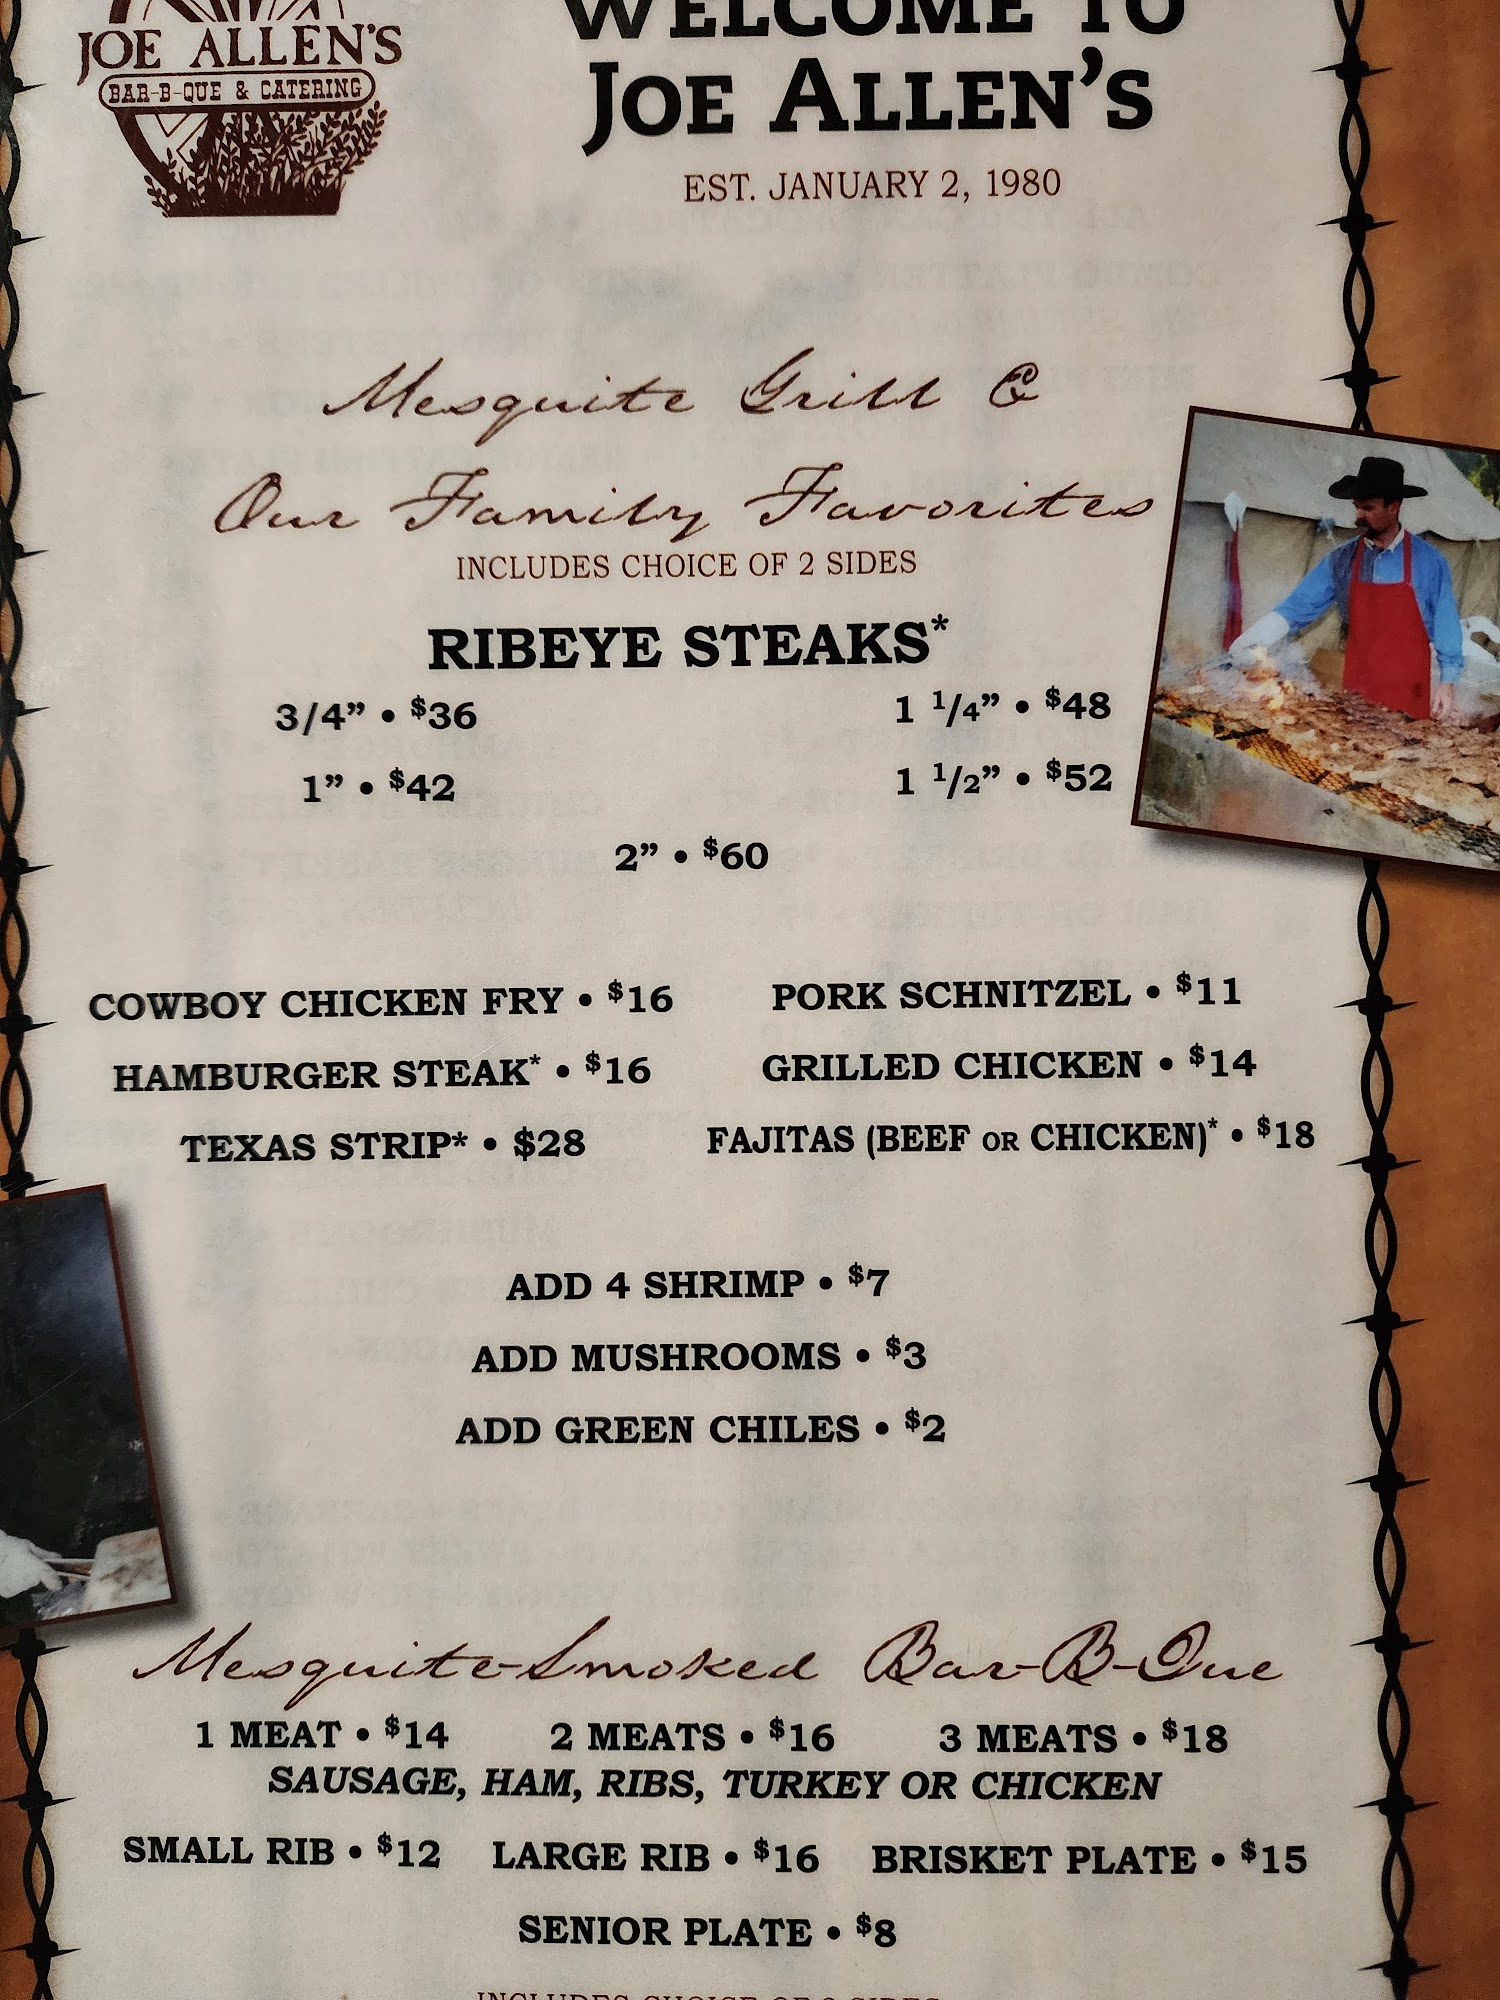 JOE ALLEN'S
BAR-B-QUE & CATERING
WELCOME TO
JOE ALLEN'S
EST. JANUARY 2, 1980
Mesquite Grill &
Our Family Favorites
INCLUDES CHOICE OF 2 SIDES
RIBEYE STEAKS*
3/4" • $36 1 1/4" • $48
1" • $42 1 1/2" • $52
2" • $60
COWBOY CHICKEN FRY • $16 PORK SCHNITZEL • $11
HAMBURGER STEAK* • $16 GRILLED CHICKEN • $14
TEXAS STRIP* • $28 FAJITAS (BEEF OR CHICKEN)* • $18
ADD 4 SHRIMP • $7
ADD MUSHROOMS • $3
ADD GREEN CHILES • $2
Mesquite-Smoked Bar-B-Que
1 MEAT • $14 2 MEATS • $16 3 MEATS • $18
SAUSAGE, HAM, RIBS, TURKEY OR CHICKEN
SMALL RIB • $12 LARGE RIB • $16 BRISKET PLATE • $15
SENIOR PLATE • $8
INCLUDES CHOICE OF 2 SIDES